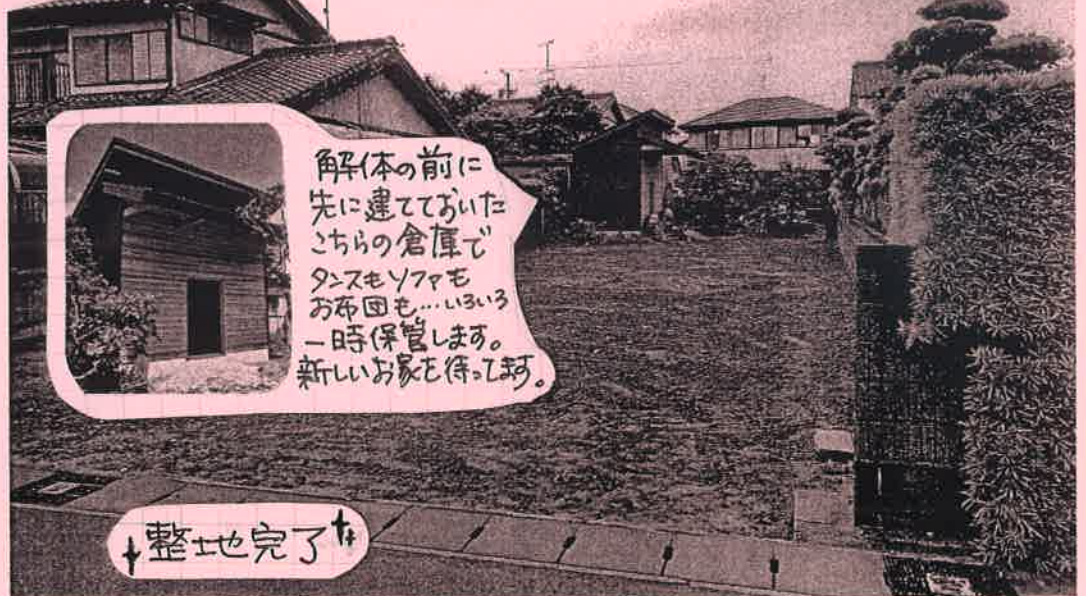 解体の前に
先に建てておいた
こちらの倉庫で
タンスもソファも
お布団も…いろいろ
一時保管します。
新しいお家を待ってます。
整地完了